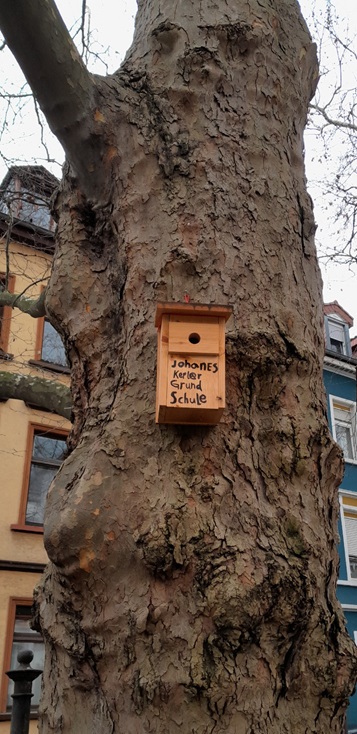 Johanes
Kerler
Grund
Schule